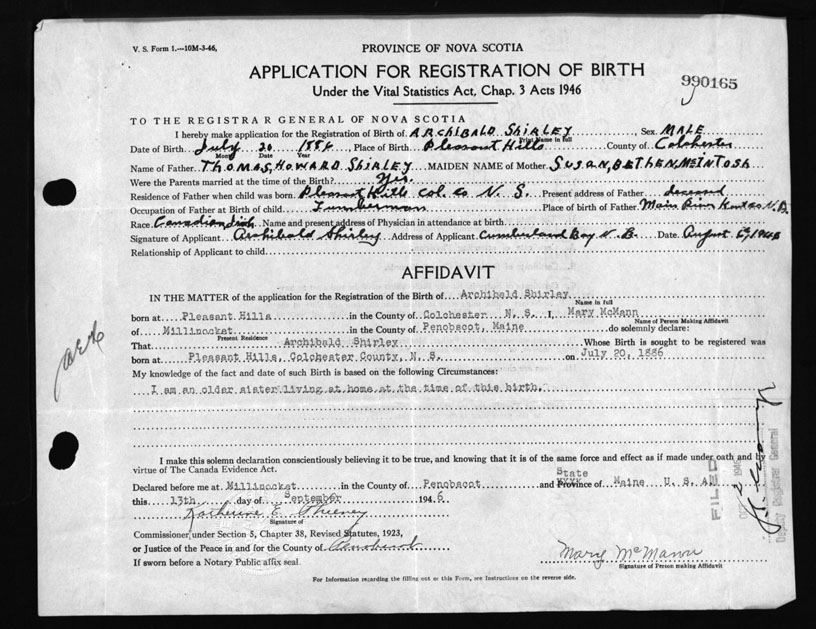 V. S. Form 1.—10M-3-46,
PROVINCE OF NOVA SCOTIA
APPLICATION FOR REGISTRATION OF BIRTH
990165
Under the Vital Statistics Act, Chap. 3 Acts 1946
TO THE REGISTRAR GENERAL OF NOVA SCOTIA
I hereby make application for the Registration of Birth of ARCHIBALD SHIRLEY, Sex MALE
Print Name in full
Date of Birth July 20 1886, Place of Birth Pleasant Hills County of Colchester
Month Date Year
Name of Father THOMAS, HOWARD SHIRLEY MAIDEN NAME of Mother SUSAN, BETHEN, McINTOSH
Were the Parents married at the time of the Birth? Yes.
Residence of Father when child was born Pleasant Hills Col. Co N. S. Present address of Father deceased
Occupation of Father at Birth of child Lumberman Place of birth of Father Main River Kent Co N.B.
Race Canadian Irish Name and present address of Physician in attendance at birth
Signature of Applicant Archibald Shirley Address of Applicant Cumberland Bay N. B. Date August 1946
Relationship of Applicant to child
AFFIDAVIT
IN THE MATTER of the application for the Registration of the Birth of Archibald Shirley
Name in full
born at Pleasant Hills in the County of Colchester N. S. I, Mary McMann
Name of Person Making Affidavit
of Millinocket in the County of Penobscot, Maine do solemnly declare:
Present Residence
That Archibald Shirley Whose Birth is sought to be registered was
born at Pleasant Hills, Colchester County, N. S. on July 20, 1886
My knowledge of the fact and date of such Birth is based on the following Circumstances:
I am an older sister living at home at the time of this birth.
I make this solemn declaration conscientiously believing it to be true, and knowing that it is of the same force and effect as if made under oath and by
virtue of The Canada Evidence Act.
State
Declared before me at Millinocket in the County of Penobscot and Province of Maine U. S. A.
this 13th day of September 1946
Katherine E.
Signature of
Commissioner under Section 5, Chapter 38, Revised Statutes, 1923,
or Justice of the Peace in and for the County of Penobscot
Mary McMann
If sworn before a Notary Public affix seal.
Signature of Person making Affidavit
For Information regarding the filling out of this Form, see Instructions on the reverse side.
FILED
Deputy Registrar General